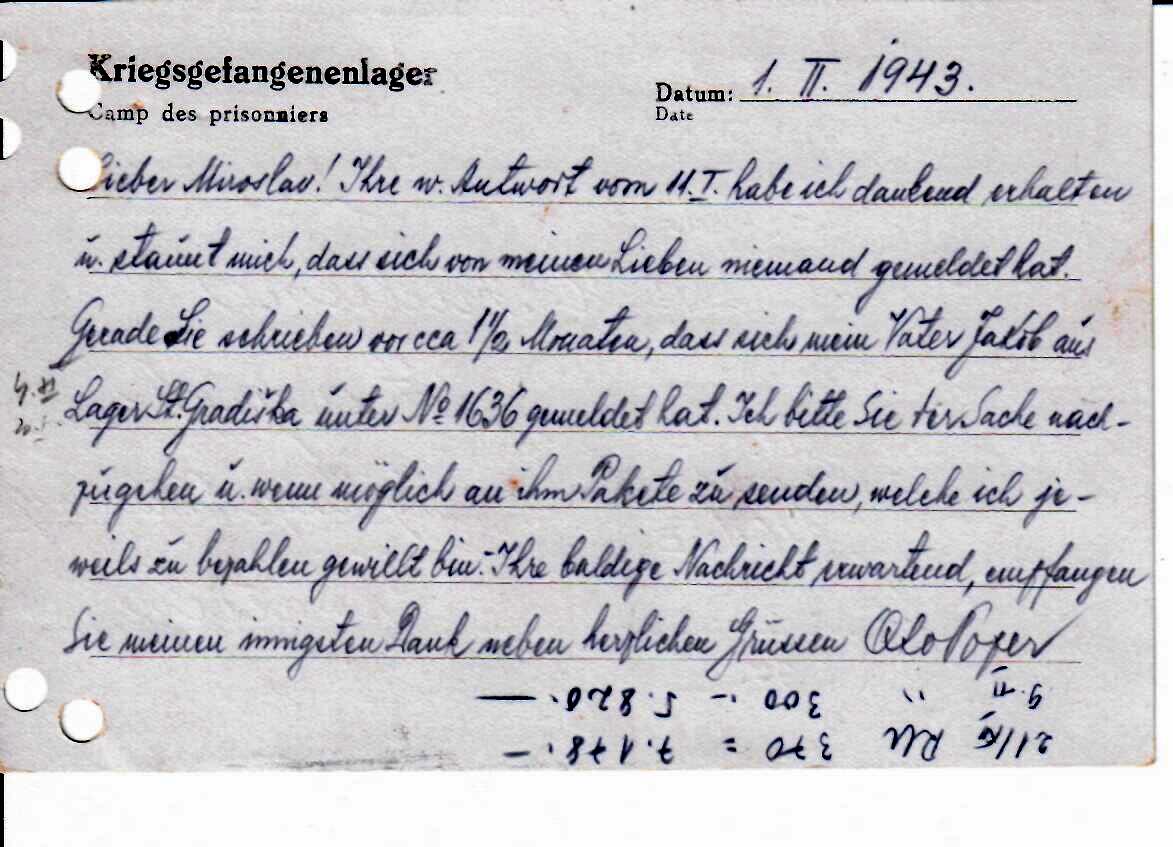 Kriegsgefangenenlager
Camp des prisonniers
Datum: 1. II. 1943.
Date
Lieber Miroslav! Ihre w. Antwort vom 11.I. habe ich dankend erhalten
u. staunt mich, dass sich von meinen Lieben niemand gemeldet hat.
Gerade Sie schrieben vor cca 1½ Monaten, dass sich mein Vater Jakob aus
Lager St. Gradiška unter No 1636 gemeldet hat. Ich bitte Sie der Sache nach-
zugehen u. wenn möglich an ihm Pakete zu senden, welche ich je-
weils zu bezahlen gewillt bin. Ihre baldige Nachricht erwartend, empfangen
Sie meinen innigsten Dank neben herzlichen Grüssen
21/XI RM 370 = 7.178.—
9.II " 300 - 5.820.—